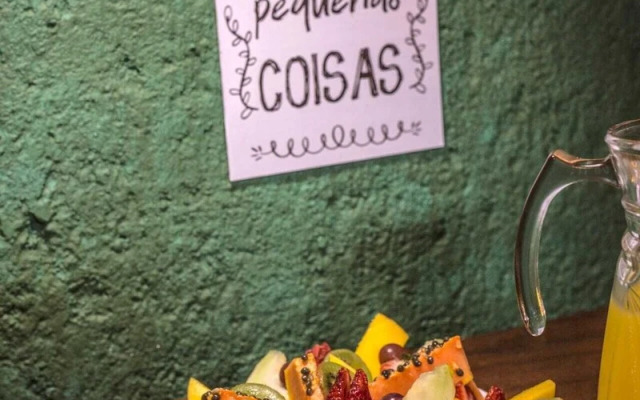 pequenas
COISAS